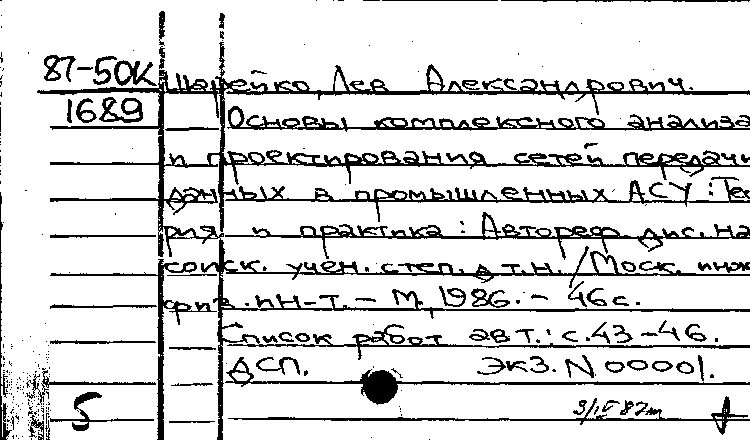 87-50К Щарейко, Лев Александрович.
1689 Основы комплексного анализа
и проектирования сетей передачи
данных в промышленных АСУ: Тео
рия и практика: Автореф. дис. на
соиск. учен. степ. д.т.н. / Моск. инж.
физ. ин-т. – М., 1986. – 46 с.
Список работ авт.: с. 43-46.
ДСП. Экз. N 00001.
5